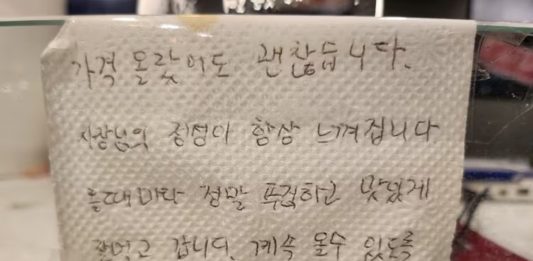 가격 올랐어도 괜찮습니다.
사장님의 정성이 항상 느껴집니다
올때마다 정말 푸짐하고 맛있게
잘먹고 갑니다. 계속 올수 있도록